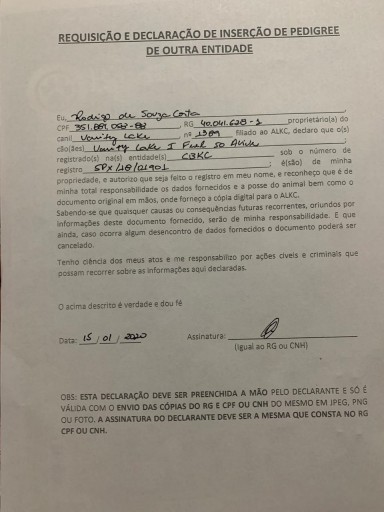 REQUISIÇÃO E DECLARAÇÃO DE INSERÇÃO DE PEDIGREE
DE OUTRA ENTIDADE
Eu, Rodrigo de Souza Costa,
CPF 351.887.098-88, RG 40.041.628-1 proprietário(a) do
canil Vanity Lake nº 1389 filiado ao ALKC, declaro que o(s)
cão(ães) Vanity Lake I Feel So Alive
registrado(s) na(s) entidade(s) CBKC sob o número de
registro SPX/18/01901 ; é(são) de minha
propriedade, e autorizo que seja feito o registro em meu nome, e reconheço que é de
minha total responsabilidade os dados fornecidos e a posse do animal bem como o
documento original em mãos, onde forneço a cópia digital para o ALKC.
Sabendo-se que quaisquer causas ou consequências futuras recorrentes, oriundos por
informações deste documento fornecido, serão de minha responsabilidade. E que
ainda, caso ocorra algum desencontro de dados fornecidos o documento poderá ser
cancelado.
Tenho ciência dos meus atos e me responsabilizo por ações cíveis e criminais que
possam recorrer sobre as informações aqui declaradas.
O acima descrito é verdade e dou fé
Data: 15/01/2020 Assinatura:
(Igual ao RG ou CNH)
OBS: ESTA DECLARAÇÃO DEVE SER PREENCHIDA A MÃO PELO DECLARANTE E SÓ É
VÁLIDA COM O ENVIO DAS CÓPIAS DO RG E CPF OU CNH DO MESMO EM JPEG, PNG
OU FOTO. A ASSINATURA DO DECLARANTE DEVE SER A MESMA QUE CONSTA NO RG
CPF OU CNH.